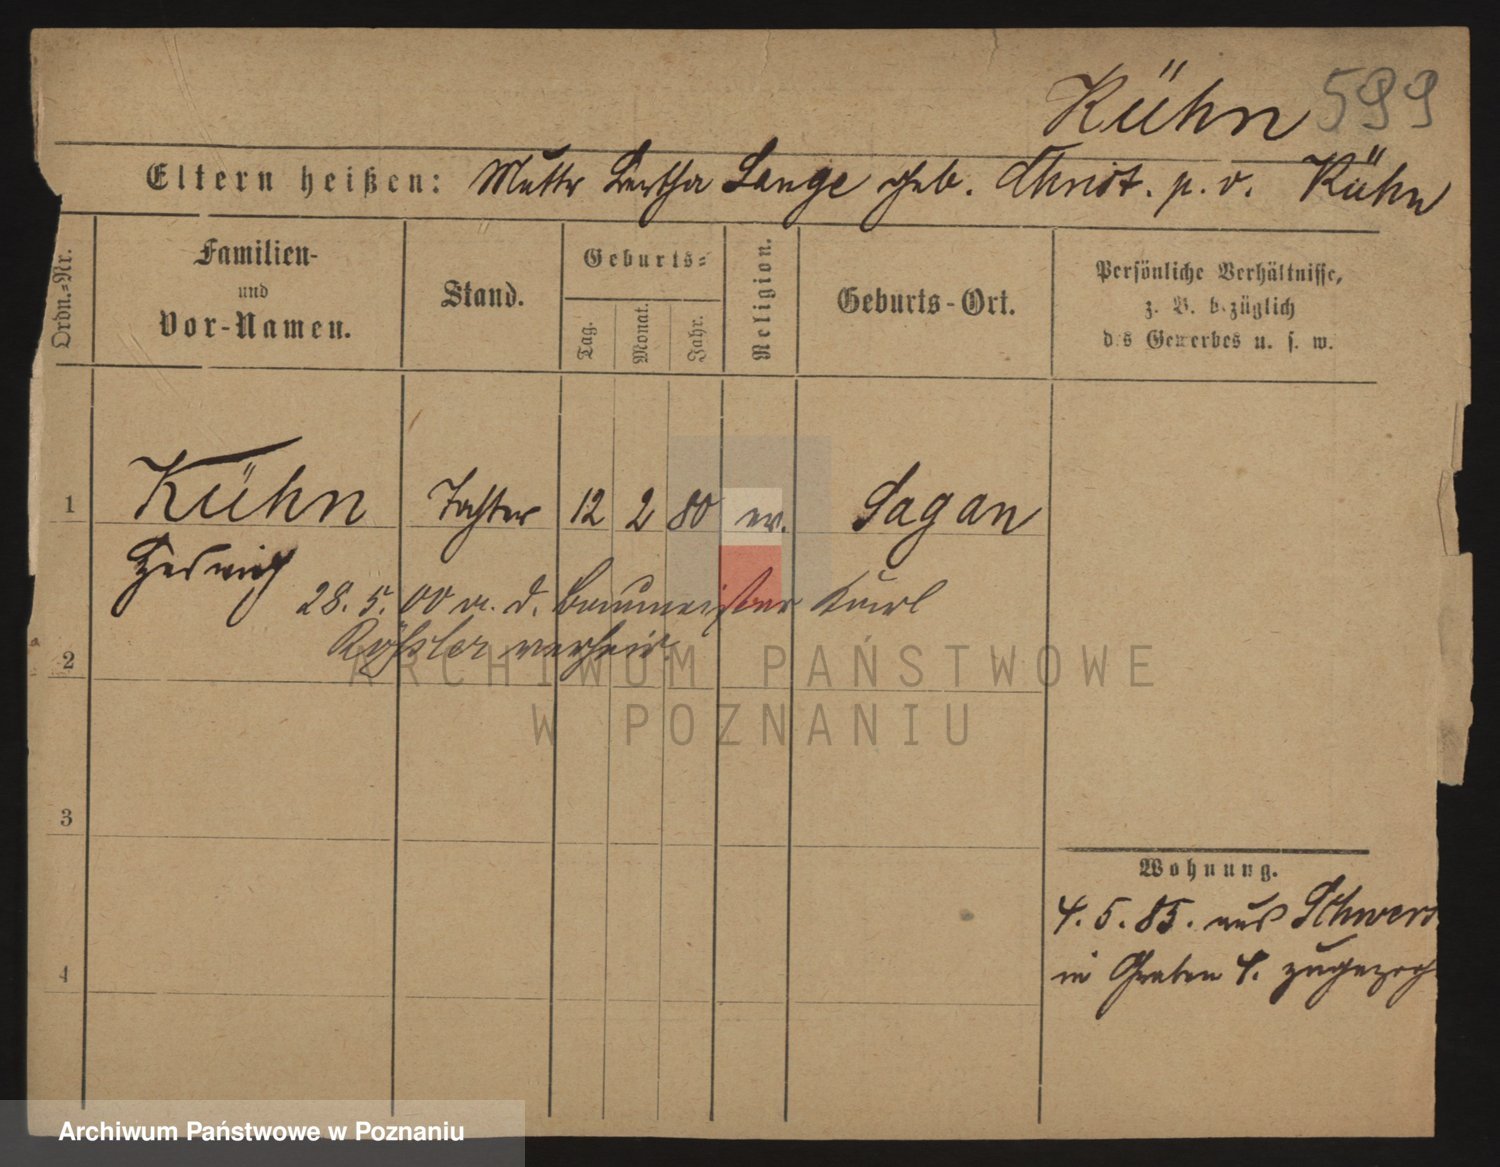 Kühn 599
Eltern heißen: Mutter Bertha Lange geb. Christ. p. v. Kühn
Ordn.-Nr.
Familien-
und
Vor-Namen.
Stand.
Geburts-
Tag.
Monat.
Jahr.
Religion.
Geburts-Ort.
Persönliche Verhältnisse,
z. B. bezüglich
des Gewerbes u. s. w.
1 Kühn Tochter 12 2 80 ev. Sagan
Hedwig
28. 5. 00 m. d. Baumeister Karl
verheir.
2
3
4
Wohnung.
4. 5. 85. aus Schwers
in Graben 4. zugezog
ARCHIWUM PAŃSTWOWE
W POZNANIU
Archiwum Państwowe w Poznaniu